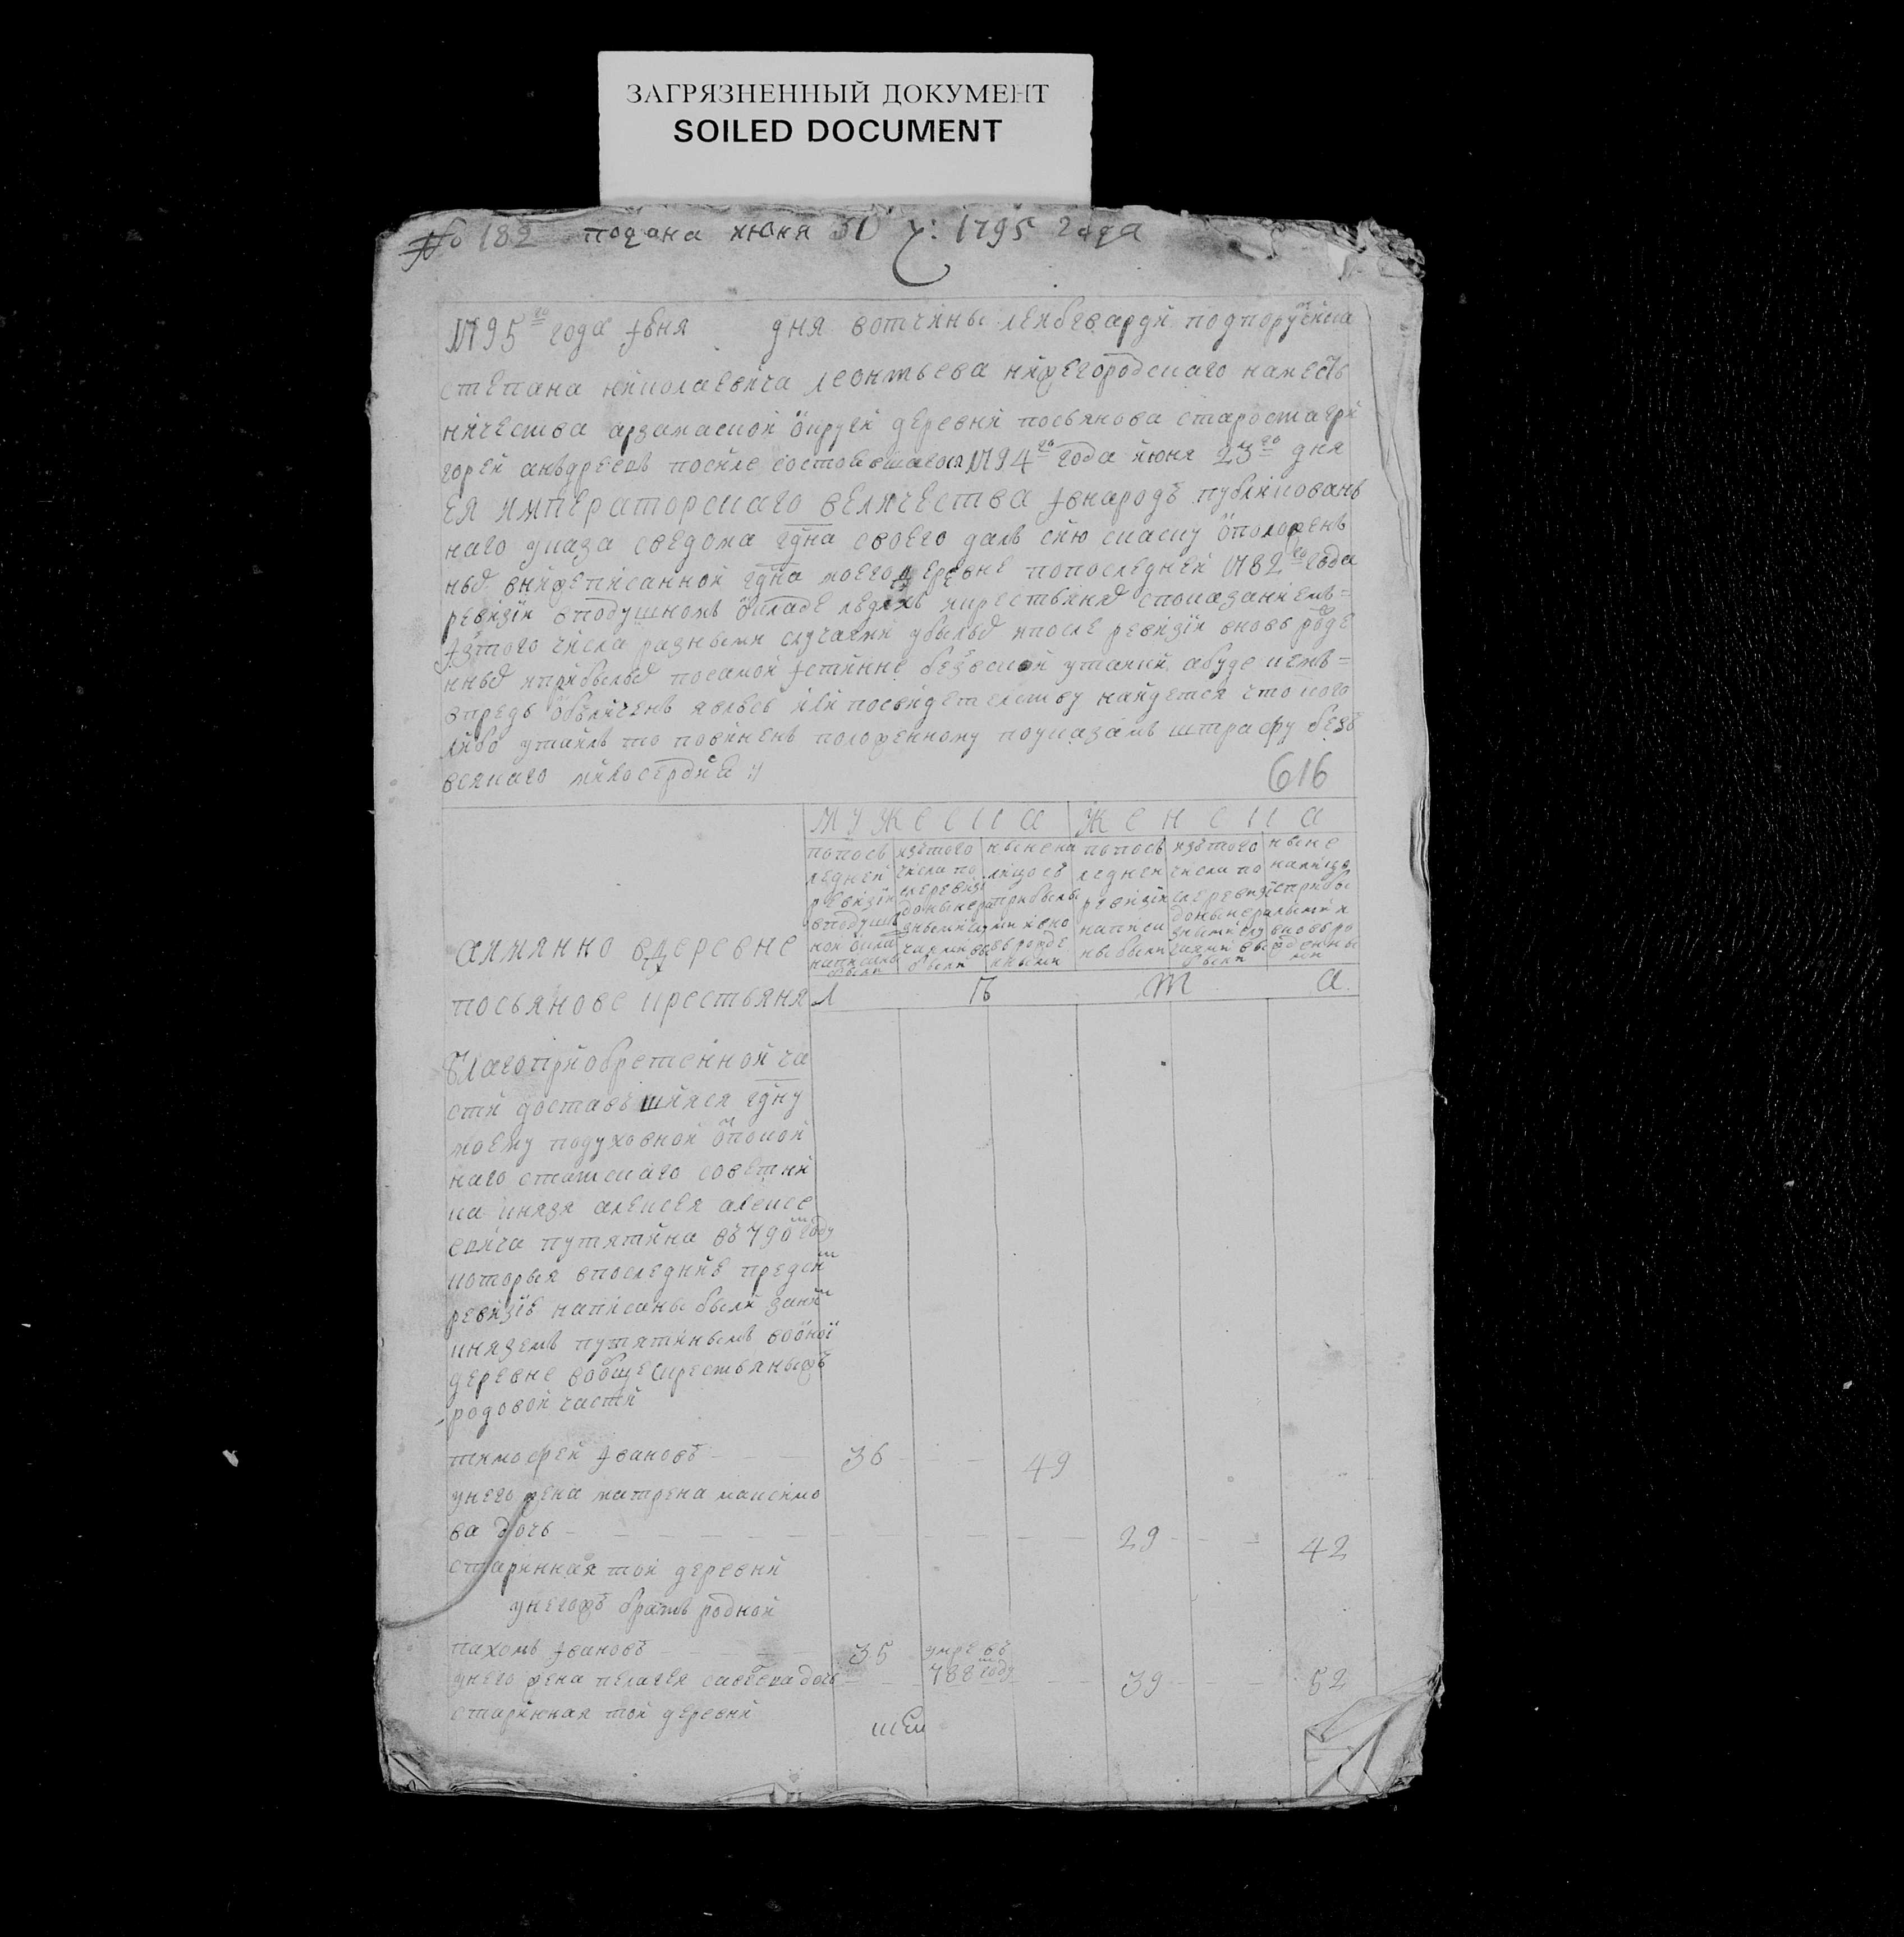 ЗАГРЯЗНЕННЫЙ ДОКУМЕНТ
SOILED DOCUMENT
№ 182 подана июня 30 ч: 1795 года
1795го года Iюня дня вотчины леибгвардй подпорутчика
степана николаевича леонтьева нижегородскаго намест
ничества арзамаской округи деревни посьянова староста гри
горей аньдреевъ после состоявшагося 1794го года июня 23го дня
ея императорскаго величества Iвнародъ публикованъ
наго указа сведома гдна своего далъ сию сказку оположенъ
ныхъ внижеписанной гдна моего деревне попоследней 1782го года
ревизiи вподушномъ окладе людяхъ икрестьянехъ споказанiемъ=
Iзтого числа разными случаями убылыхъ ипосле ревизiи вновь рожде
нныхъ иприбылыхъ посамой Iстинне безъвсякой утайки абуде кемъ=
впредь обличенъ явлюсь или посвидетелству найдется что кого
либо утаилъ то повиненъ положенному поуказамъ штрафу безъ
всякаго милосердия
616
мужеска женска
попось ледней ревизiи вподуш ной окла написаны были
изтого числа по сле ревизiи доныне ра зными слу чаями вы были
ныне на лицо съ прибылы ми и вно вь рожде нными
попось ледней ревизiи написа ны были
изтого числа по сле ревизiи доныне ра зными слу чаями вы были
ныне налицо сприбы лыми и вновь ро жденны ми
аимянно вдеревне
посьянове крестьяня
л ѣ т а
благоприобретенной ча
сти доставъшияся гдну
моему подуховной опокой
наго статскаго советни
ка князя алексея алексе
евича путятина въ 790м году
которыя впоследние пред сим
ревизiе написаны были заним
княземъ путятинымъ воoной
деревне вобще скрестьяны ево
родовой части
тимофей Iвановъ 36 49
унего жена матрена максимо
ва дочь 29 42
старинная той деревни
унегожъ братъ родной
пахомъ Iвановъ 35 умре въ
788м году
унего жена пелагея савельева дочь 39 52
старинная той деревни